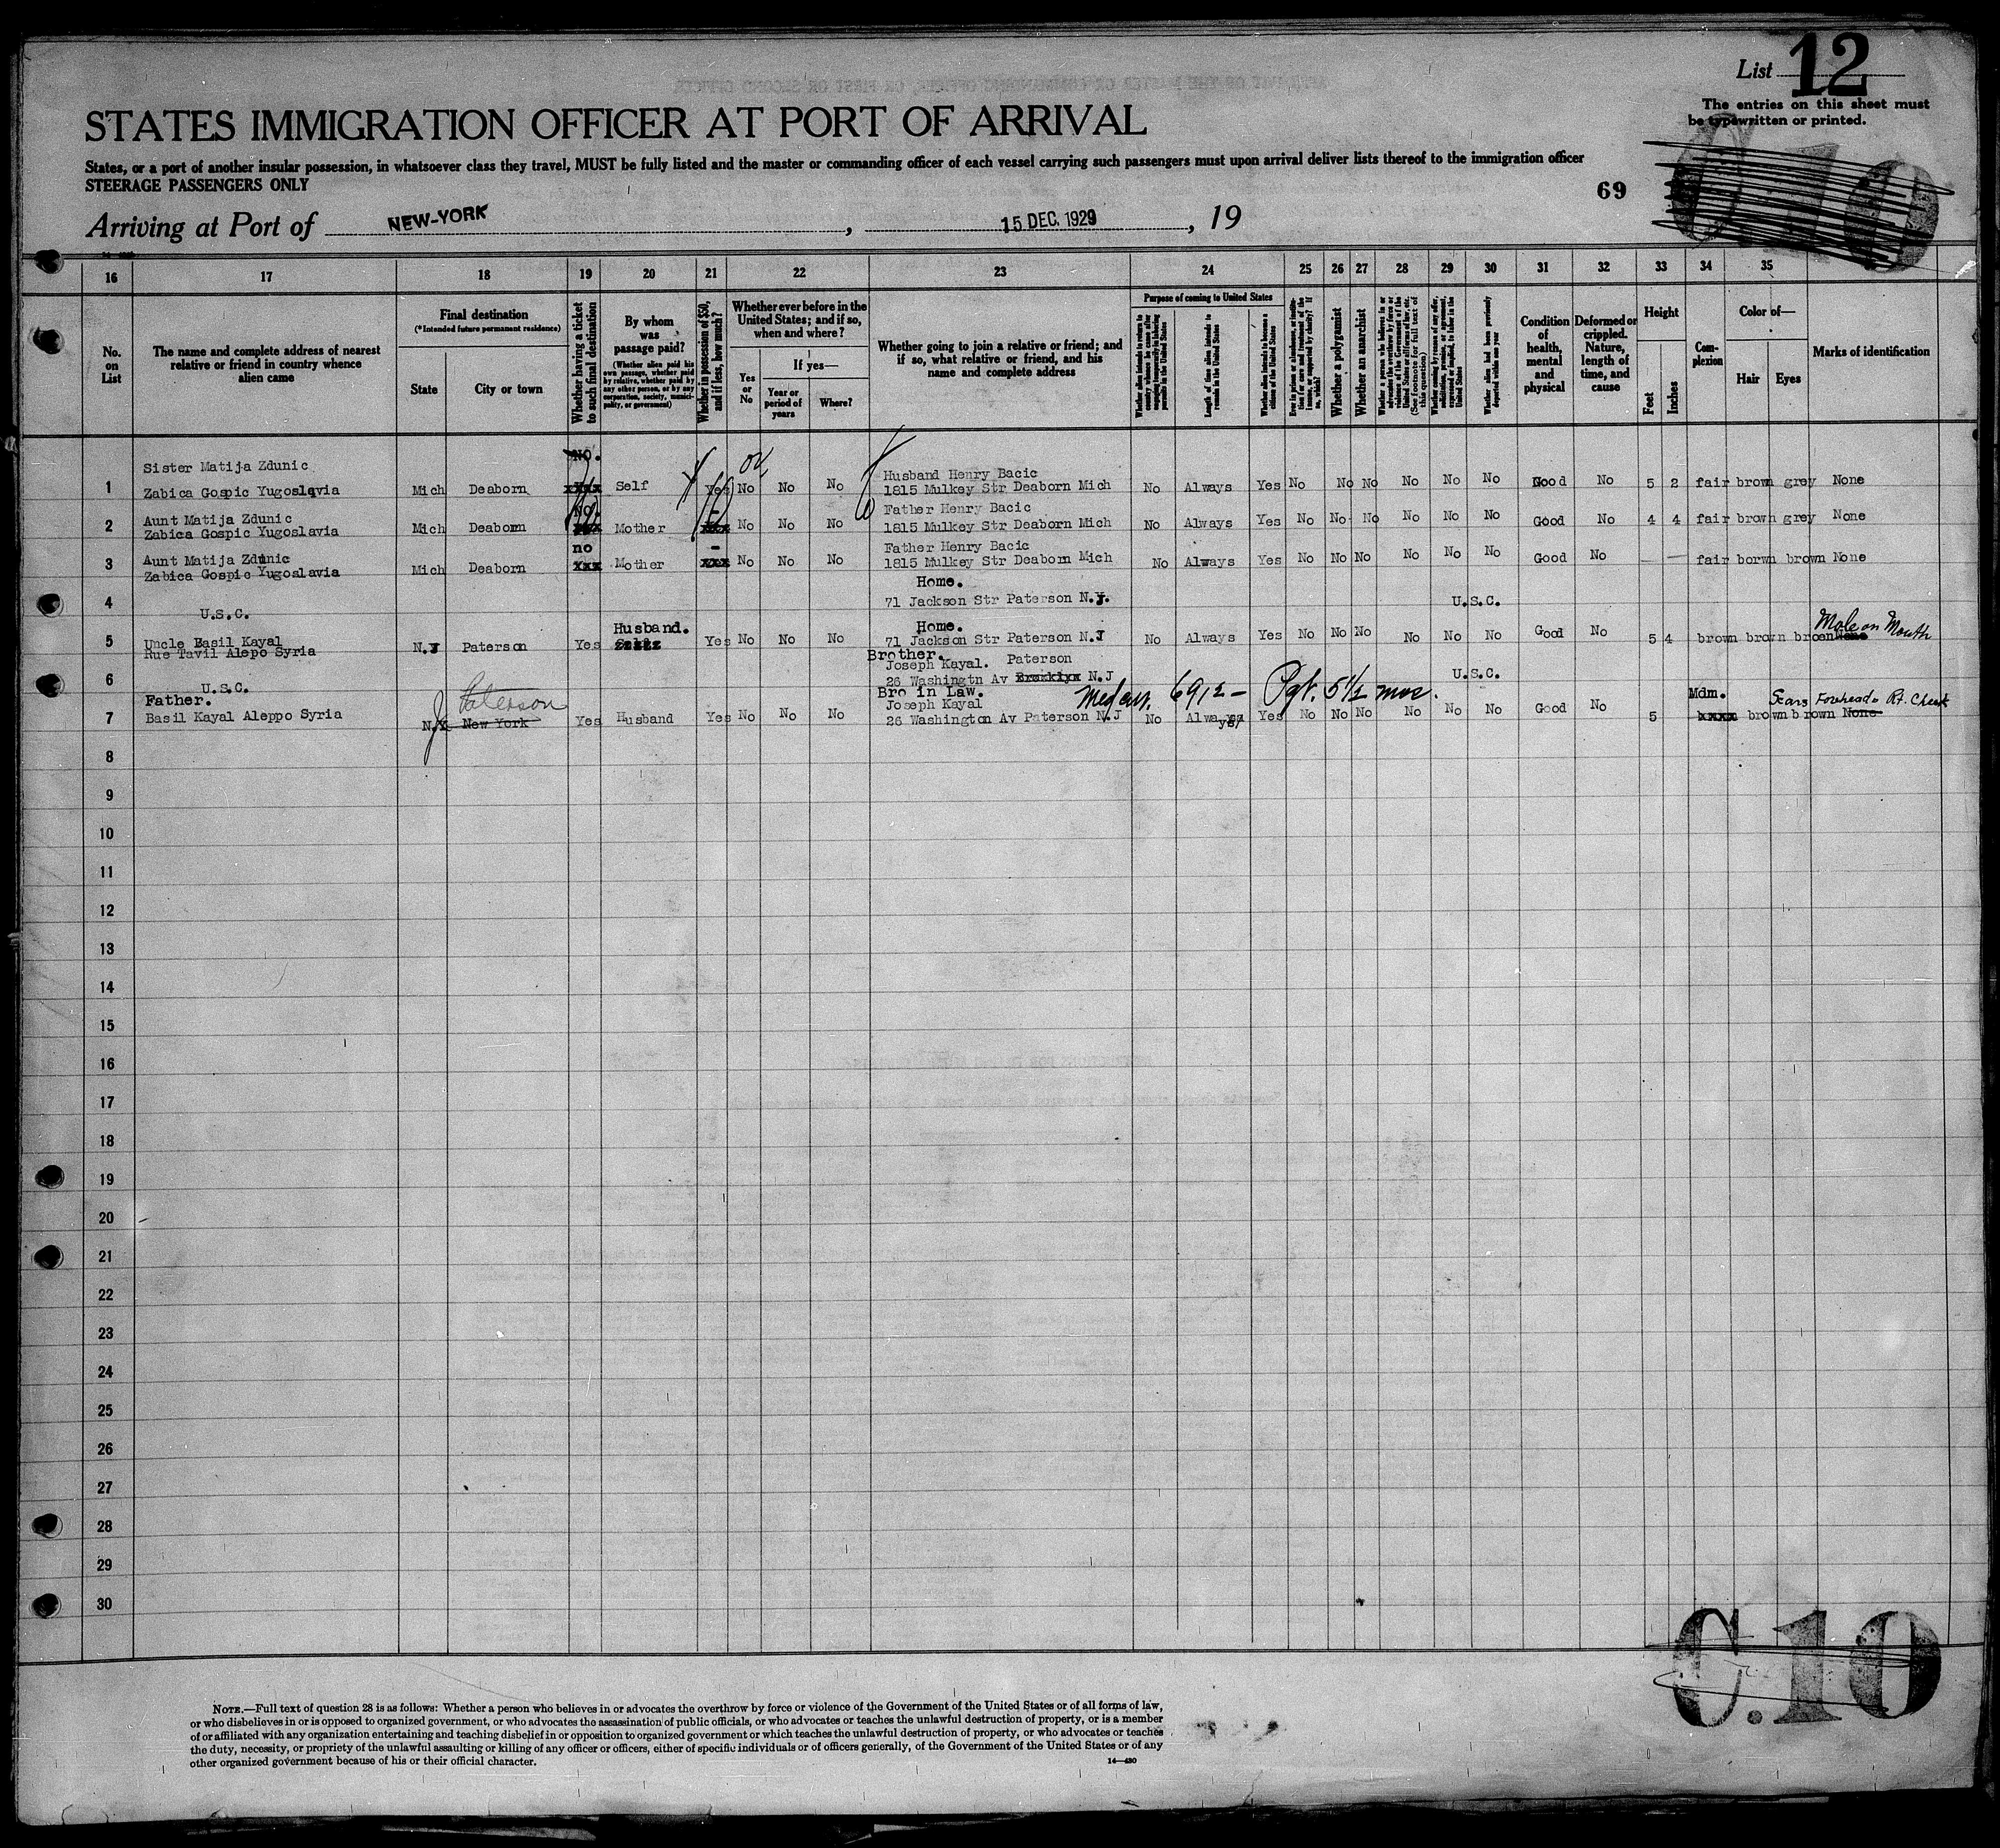 List 12
The entries on this sheet must
be typewritten or printed.
STATES IMMIGRATION OFFICER AT PORT OF ARRIVAL
States, or a port of another insular possession, in whatsoever class they travel, MUST be fully listed and the master or commanding officer of each vessel carrying such passengers must upon arrival deliver lists thereof to the immigration officer
STEERAGE PASSENGERS ONLY
69
C.10
Arriving at Port of NEW-YORK, 15 DEC. 1929, 19
16 17 18 19 20 21 22 23 24 25 26 27 28 29 30 31 32 33 34 35
No. on List
The name and complete address of nearest
relative or friend in country whence
alien came
Final destination
(*Intended future permanent residence)
State
City or town
Whether having a ticket
to such final destination
By whom
was
passage paid?
(Whether alien paid his
own passage, whether paid
by relative, whether paid by
any other person, or by any
corporation, society, munici-
pality, or government)
Whether in possession of $50,
and if less, how much?
Whether ever before in the
United States; and if so,
when and where?
Yes
or
No
If yes—
Year or
period of
years
Where?
Whether going to join a relative or friend; and
if so, what relative or friend, and his
name and complete address
Purpose of coming to United States
Length of time alien intends to
remain in the United States
Whether alien intends to become a
citizen of the United States
Whether a polygamist
Whether an anarchist
(See footnote for full text of
this question)
Whether alien had been previously
deported within one year
Condition
of
health,
mental
and
physical
Deformed or
crippled.
Nature,
length of
time, and
cause
Height
Feet
Inches
Com-
plexion
Color of—
Hair
Eyes
Marks of identification
No.
Sister Matija Zdunic Husband Henry Bacic
1 Zabica Gospic Yugoslavia Mich Deaborn xxx Self Yes No No No 1815 Mulkey Str Deaborn Mich No Always Yes No No No No No No Good No 5 2 fair brown grey None
Aunt Matija Zdunic No. - Father Henry Bacic
2 Zabica Gospic Yugoslavia Mich Deaborn xxx Mother xxx No No No 1815 Mulkey Str Deaborn Mich No Always Yes No No No No No No Good No 4 4 fair brown grey None
Aunt Matija Zdunic no - Father Henry Bacic
3 Zabica Gospic Yugoslavia Mich Deaborn xxx Mother xxx No No No 1815 Mulkey Str Deaborn Mich No Always Yes No No No No No No Good No — — fair borwn brown None
Home.
4 U.S.C. 71 Jackson Str Paterson N.J. U.S.C.
Uncle Basil Kayal Husband. Home. Mole on Mouth
5 Rue Tavil Alepo Syria N.J Paterson Yes Yes No No No 71 Jackson Str Paterson N.J No Always Yes No No No No No No Good No 5 4 brown brown broen None
Brother.
Joseph Kayal. Paterson
6 U.S.C. 26 Washingtn Av Brooklyn N.J U.S.C.
Father. Paterson Bro in Law. Med cer. 6912- Pgt. 5½ mos. Mdm. Scars Forehead & Rt. Cheek
Joseph Kayal
7 Basil Kayal Aleppo Syria N.J New York Yes Husband Yes No No No 26 Washington Av Paterson N.J No Always Yes No No No No No No Good No 5 xxxx brown brown None
8
9
10
11
12
13
14
15
16
17
18
19
20
21
22
23
24
25
26
27
28
29
30
C.10
NOTE.—Full text of question 28 is as follows: Whether a person who believes in or advocates the overthrow by force or violence of the Government of the United States or of all forms of law,
or who disbelieves in or is opposed to organized government, or who advocates the assassination of public officials, or who advocates or teaches the unlawful destruction of property, or is a member
of or affiliated with any organization entertaining and teaching disbelief in or opposition to organized government or which teaches the unlawful destruction of property, or who advocates or teaches
the duty, necessity, or propriety of the unlawful assaulting or killing of any officer or officers, either of specific individuals or of officers generally, of the Government of the United States or of any
other organized government because of his or their official character.
14—430